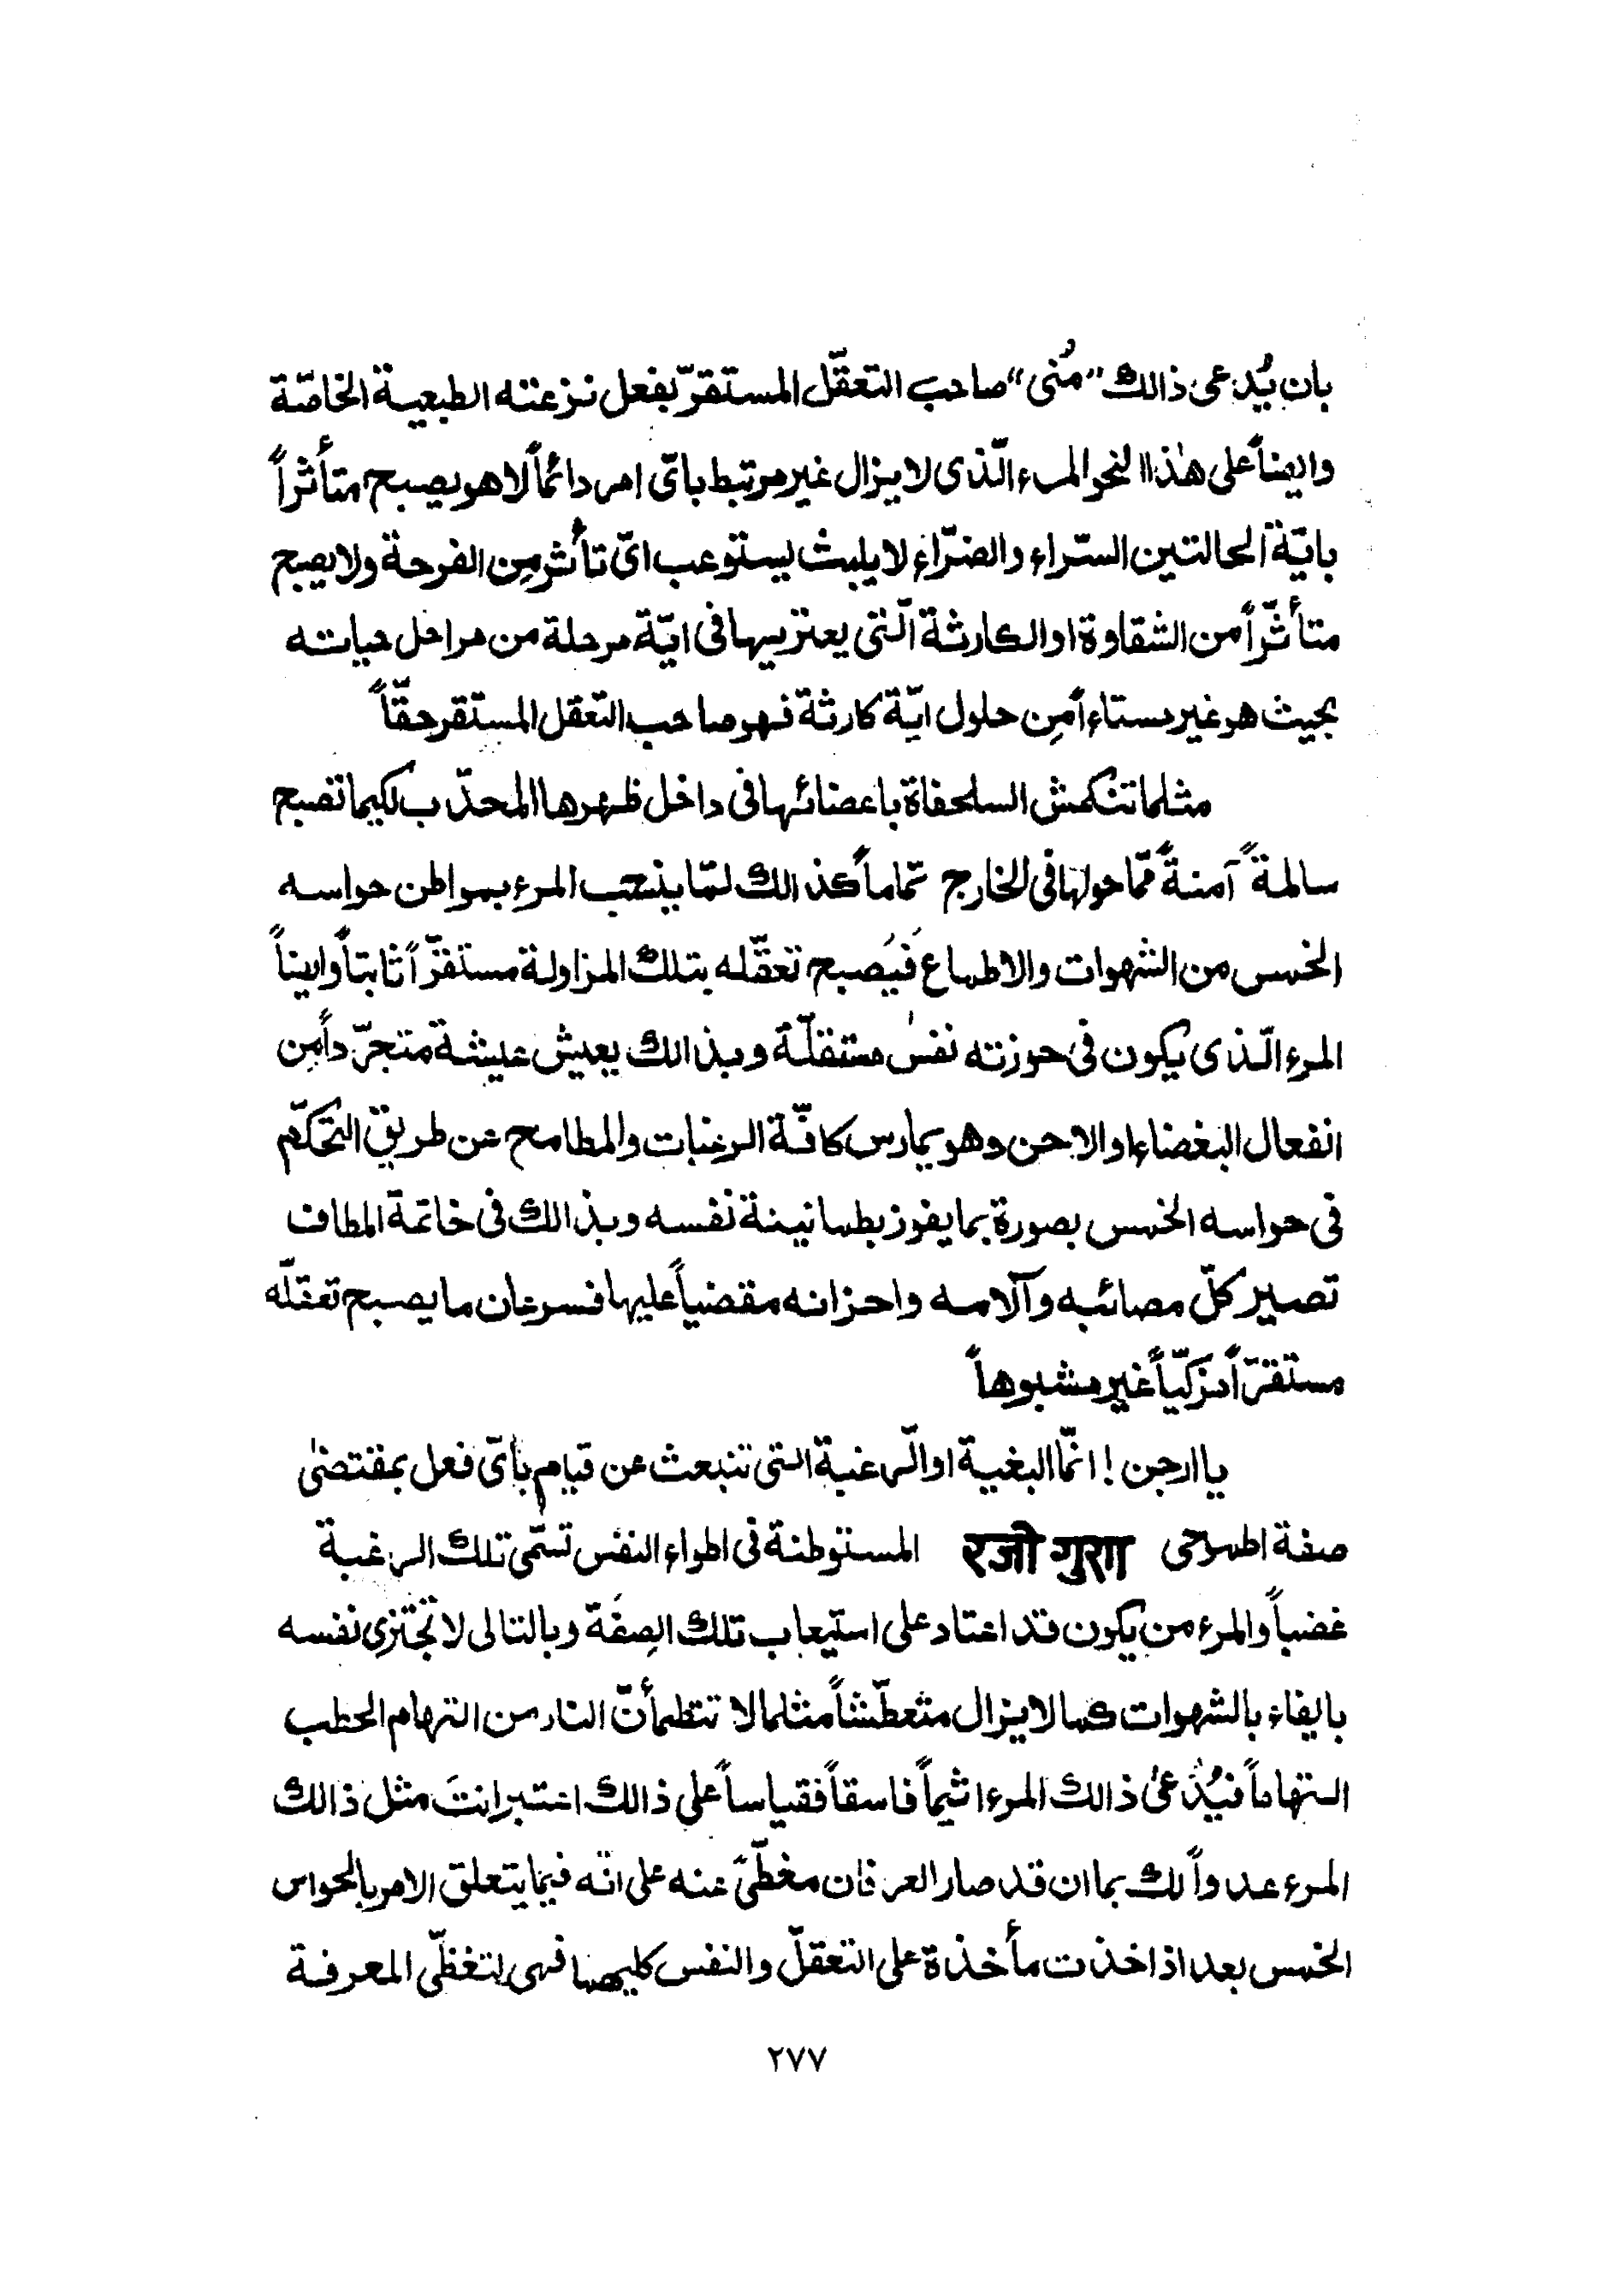 بان يُدعى ذالك "مُنى" صاحب التعقّل المستقرّ بفعل نزعته الطبعية الخاصّة
وايضاً على هٰذا النحو المرء الّذى لا يزال غير مرتبط باىّ امر دائماً لا هو يصبح متأثراً
بايّة الحالتين السّراء والضرّاء لا يلبث يستوعب اىّ تأثر مِن الفرحة ولا يصبح
متأثّراً من الشقاوة او الكارثة الّتى يعتريها فى ايّة مرحلة من مراحل حياته
بحيث هو غير مستاء اً مِن حلول ايّة كارثة فهو صاحب التعقل المستقر حقّاً
مثلما تنكمش السلحفاة باعضائها فى داخل ظهرها المحدّب لكيما تصبح
سالمةً آمنةً ممّا حولها فى الخارج تماماً كذالك لمّا ينحب المرء بمواطن حواسه
الخمس من الشهوات والاطماع فيُصبح تعقّله بتلك المزاولة مستقرّاً ثابتاً وايضاً
المرء الّذى يكون فى حوزته نفس مستقلّة وبذالك يعيش عيشة متجرّداً مِن
انفعال البغضاء او الاحن وهو يمارس كافّة الرغبات والمطامح عن طريق التحكّم
فى حواسه الخمس بصورة بما يفوز بطمانينة نفسه وبذالك فى خاتمة المطاف
تصير كلّ مصائبه وآلامه واحزانه مقضياً عليها فسرعان ما يصبح تعقلّه
مستقرّاً مزكيّاً غير مشبوهاً
يا ارجن ! انّما البغية او الّرغبة التى تنبعث عن قيام باىّ فعل بمقتضىٰ
صفة الطموحى रजो गुरा المستوطنة فى اطواء النفس تسمّى تلك الرغبة
غضباً والمرء من يكون قد اعتاد على استيعاب تلك الصِفَة وبالتالى لا تجتزى نفسه
بايفاء بالشهوات كما لا يزال متعطّشاً مثلما لا تتطمأنّ النار من التهام الحطب
التهاماً فيُدعىٰ ذالك المرء اثيماً فاسقاً فقياساً على ذالك اعتبر انتَ مثل ذالك
المرء عدواً لك بما ان قد صار العرفان مغطّىً عنه على انّه فيما يتعلق الامر بالحواس
الخمس بعد اذ اخذت مأخذة على التعقلّ والنفس كليهما فهى لتغظّى المعرفة
٢٧٧